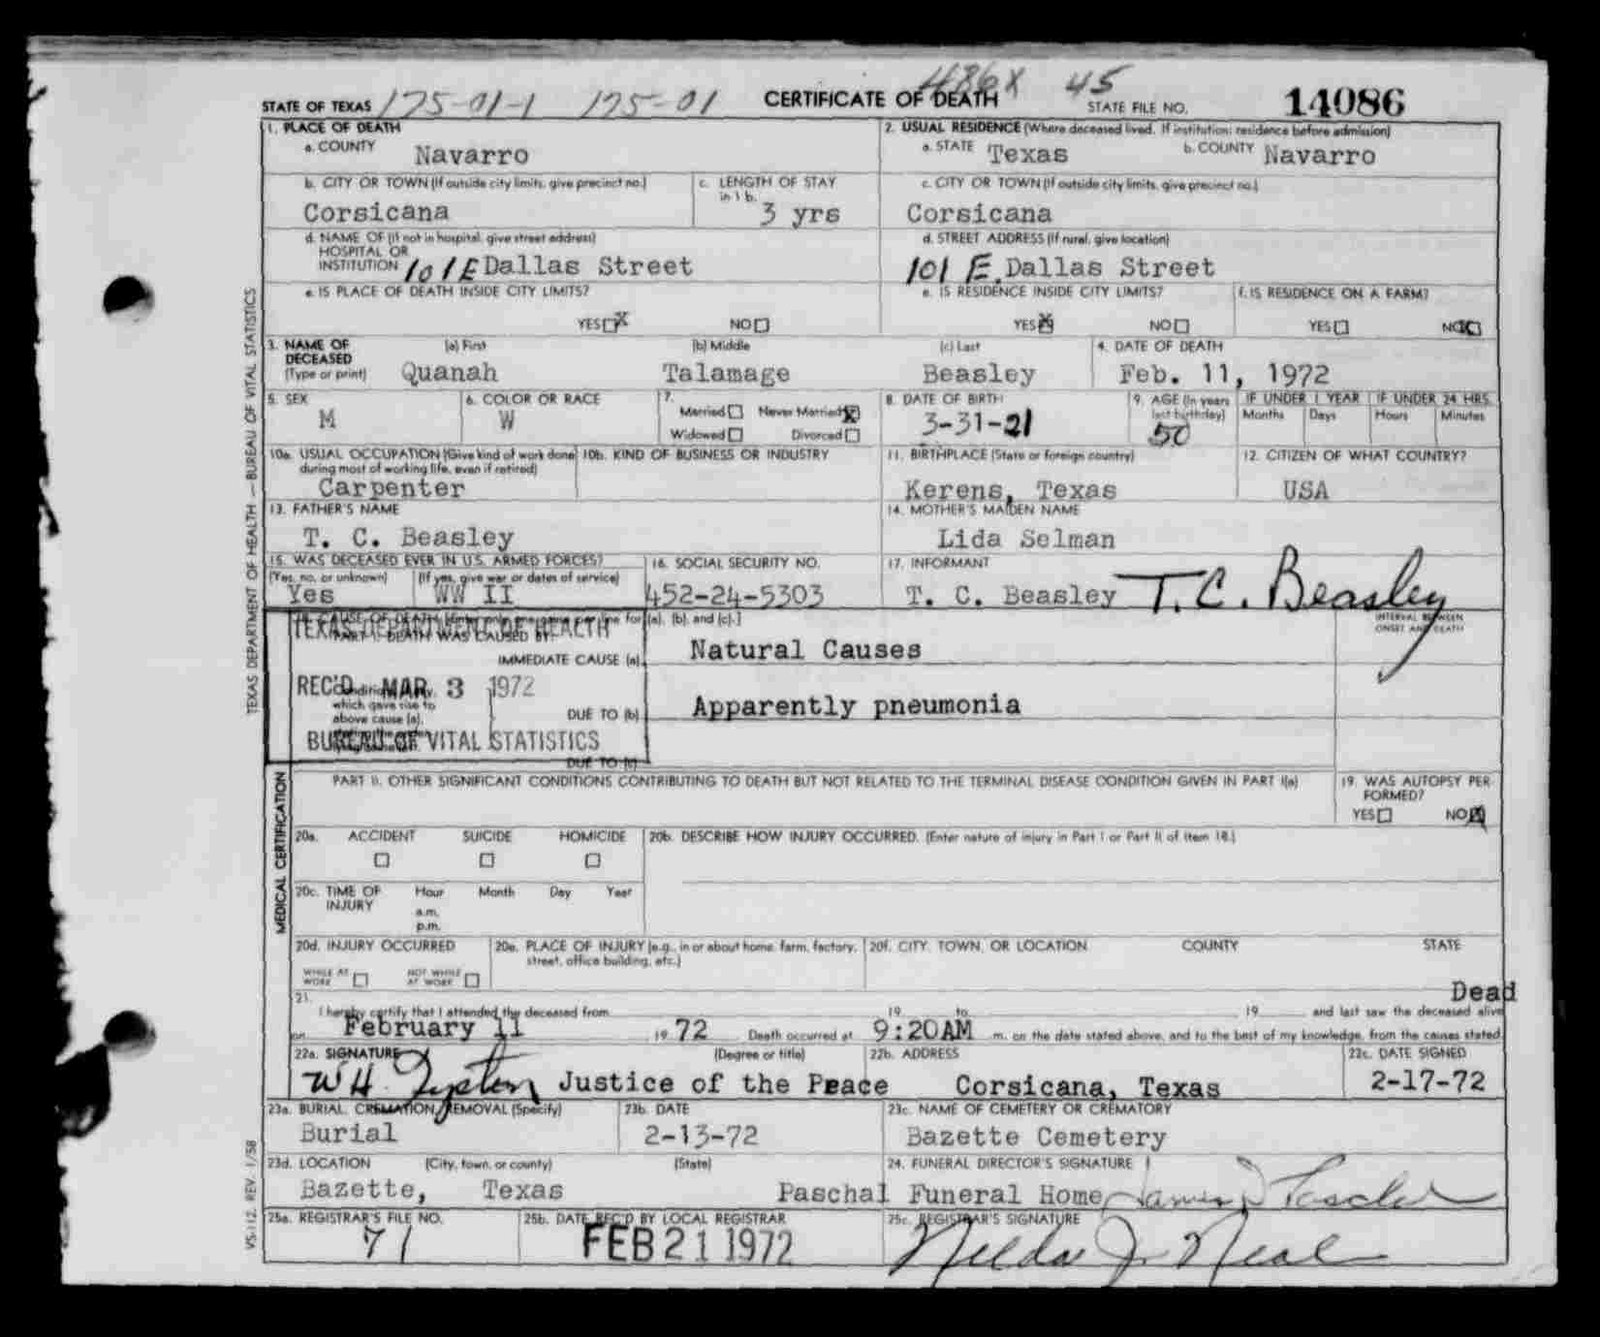 486X 45
STATE OF TEXAS 175-01-1 175-01 CERTIFICATE OF DEATH STATE FILE NO. 14086
1. PLACE OF DEATH
a. COUNTY Navarro
2. USUAL RESIDENCE (Where deceased lived. If institution: residence before admission)
a. STATE Texas b. COUNTY Navarro
b. CITY OR TOWN (If outside city limits, give precinct no.)
Corsicana
c. LENGTH OF STAY
in 1 b.
3 yrs
c. CITY OR TOWN (If outside city limits, give precinct no.)
Corsicana
d. NAME OF (If not in hospital, give street address)
HOSPITAL OR
INSTITUTION 101 E Dallas Street
d. STREET ADDRESS (If rural, give location)
101 E. Dallas Street
e. IS PLACE OF DEATH INSIDE CITY LIMITS?
YES☒ NO☐
e. IS RESIDENCE INSIDE CITY LIMITS?
YES☒ NO☐
f. IS RESIDENCE ON A FARM?
YES☐ NO☒
3. NAME OF
DECEASED
(Type or print)
(a) First (b) Middle (c) Last
Quanah Talamage Beasley
4. DATE OF DEATH
Feb. 11, 1972
5. SEX
M
6. COLOR OR RACE
W
7.
Married☐ Never Married☒
Widowed☐ Divorced☐
8. DATE OF BIRTH
3-31-21
9. AGE (In years
last birthday)
50
IF UNDER 1 YEAR
Months Days
IF UNDER 24 HRS.
Hours Minutes
10a. USUAL OCCUPATION (Give kind of work done
during most of working life, even if retired)
Carpenter
10b. KIND OF BUSINESS OR INDUSTRY
11. BIRTHPLACE (State or foreign country)
Kerens, Texas
12. CITIZEN OF WHAT COUNTRY?
USA
13. FATHER'S NAME
T. C. Beasley
14. MOTHER'S MAIDEN NAME
Lida Selman
15. WAS DECEASED EVER IN U.S. ARMED FORCES?
(Yes, no, or unknown) (If yes, give war or dates of service)
Yes WW II
16. SOCIAL SECURITY NO.
452-24-5303
17. INFORMANT
T. C. Beasley T. C. Beasley
line for (a), (b), and (c).]
TEXAS DEPARTMENT OF HEALTH
PART I. DEATH WAS CAUSED BY:
INTERVAL BETWEEN
ONSET AND DEATH
IMMEDIATE CAUSE (a) Natural Causes
REC'D MAR 3 1972
which gave rise to
above cause (a),
DUE TO (b) Apparently pneumonia
BUREAU OF VITAL STATISTICS
DUE TO (c)
PART II. OTHER SIGNIFICANT CONDITIONS CONTRIBUTING TO DEATH BUT NOT RELATED TO THE TERMINAL DISEASE CONDITION GIVEN IN PART I(a)
19. WAS AUTOPSY PER
FORMED?
YES☐ NO☒
20a. ACCIDENT SUICIDE HOMICIDE
☐ ☐ ☐
20b. DESCRIBE HOW INJURY OCCURRED. (Enter nature of injury in Part I or Part II of Item 18.)
20c. TIME OF
INJURY
Hour Month Day Year
a.m.
p.m.
20d. INJURY OCCURRED
WHILE AT
WORK ☐
NOT WHILE
AT WORK ☐
20e. PLACE OF INJURY (e.g., in or about home, farm, factory,
street, office building, etc.)
20f. CITY, TOWN, OR LOCATION COUNTY STATE
21. Dead
I hereby certify that I attended the deceased from 19 to 19 and last saw the deceased alive
on February 11 19 72 Death occurred at 9:20AM m. on the date stated above, and to the best of my knowledge, from the causes stated.
22a. SIGNATURE (Degree or title)
W H Justice of the Peace
22b. ADDRESS
Corsicana, Texas
22c. DATE SIGNED
2-17-72
23a. BURIAL, CREMATION, REMOVAL (Specify)
Burial
23b. DATE
2-13-72
23c. NAME OF CEMETERY OR CREMATORY
Bazette Cemetery
23d. LOCATION (City, town, or county) (State)
Bazette, Texas
24. FUNERAL DIRECTOR'S SIGNATURE
Paschal Funeral Home
25a. REGISTRAR'S FILE NO.
71
25b. DATE REC'D BY LOCAL REGISTRAR
FEB 21 1972
25c. REGISTRAR'S SIGNATURE
Nelda J. Neal
TEXAS DEPARTMENT OF HEALTH — BUREAU OF VITAL STATISTICS
MEDICAL CERTIFICATION
VS-112, REV. 1/58